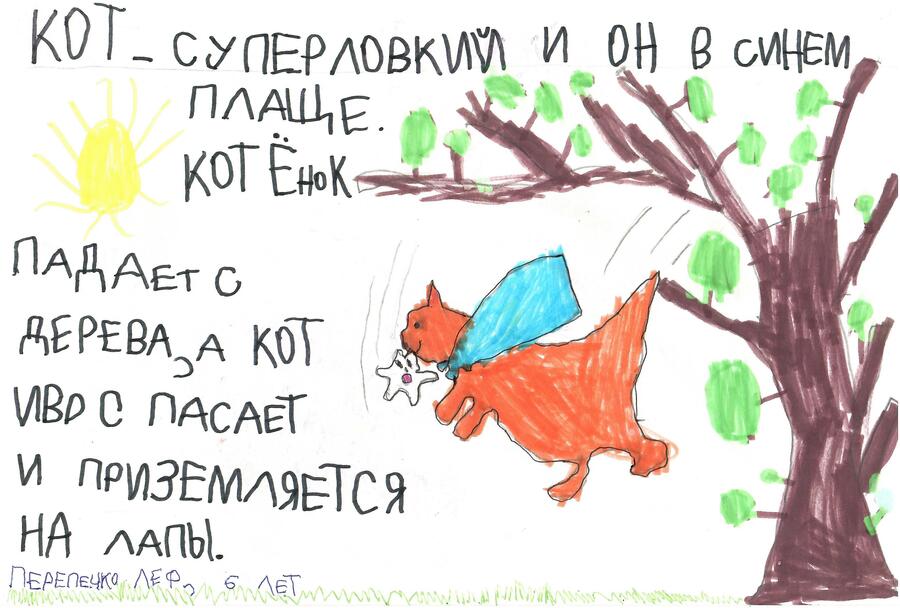 КОТ - СУПЕРЛОВКИЙ И ОН В СИНЕМ
ПЛАЩЕ.
КОТЁНОК
ПАДАЕТ С
ДЕРЕВА, А КОТ
ИВО С ПАСАЕТ
И ПРИЗЕМЛЯЕТСЯ
НА ЛАПЫ.
ПЕРЕПЕЧКО ЛЕФ, 6 ЛЕТ